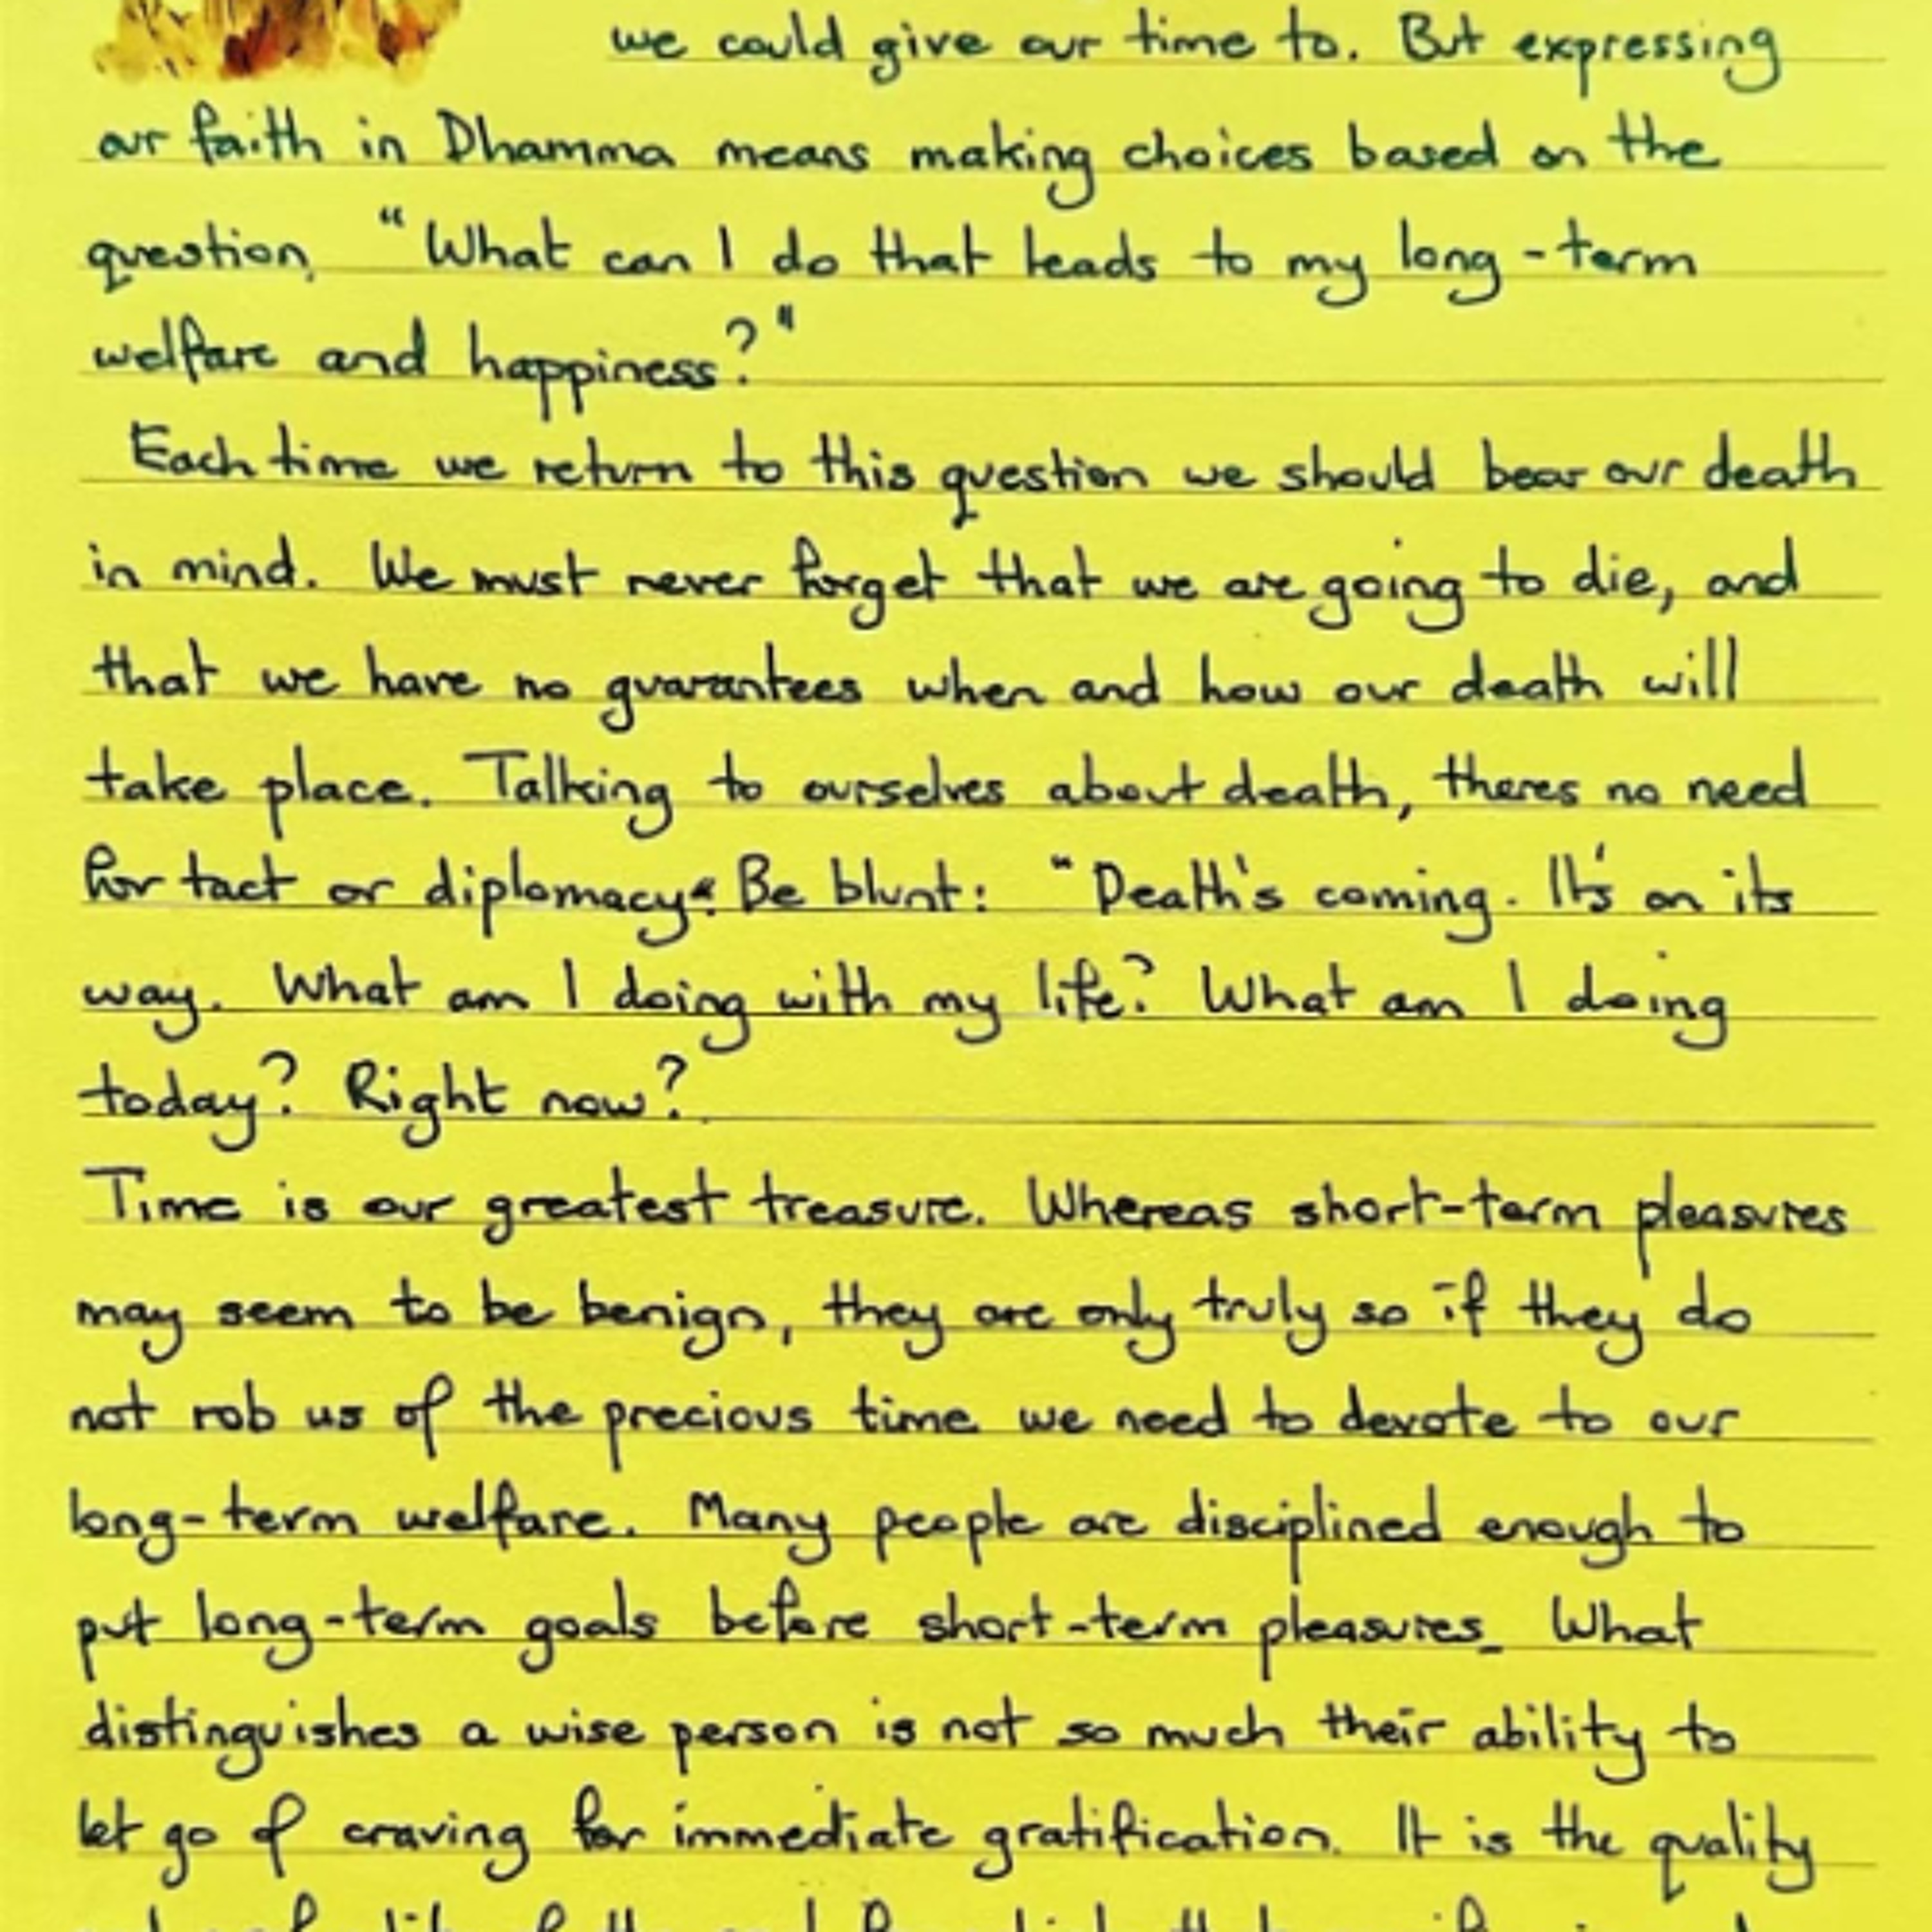 we could give our time to. But expressing
our faith in Dhamma means making choices based on the
question, "What can I do that leads to my long-term
welfare and happiness?"
Each time we return to this question we should bear our death
in mind. We must never forget that we are going to die, and
that we have no guarantees when and how our death will
take place. Talking to ourselves about death, theres no need
for tact or diplomacy. Be blunt: "Death's coming. It's on its
way. What am I doing with my life? What am I doing
today? Right now?
Time is our greatest treasure. Whereas short-term pleasures
may seem to be benign, they are only truly so if they do
not rob us of the precious time we need to devote to our
long-term welfare. Many people are disciplined enough to
put long-term goals before short-term pleasures. What
distinguishes a wise person is not so much their ability to
let go of craving for immediate gratification. It is the quality